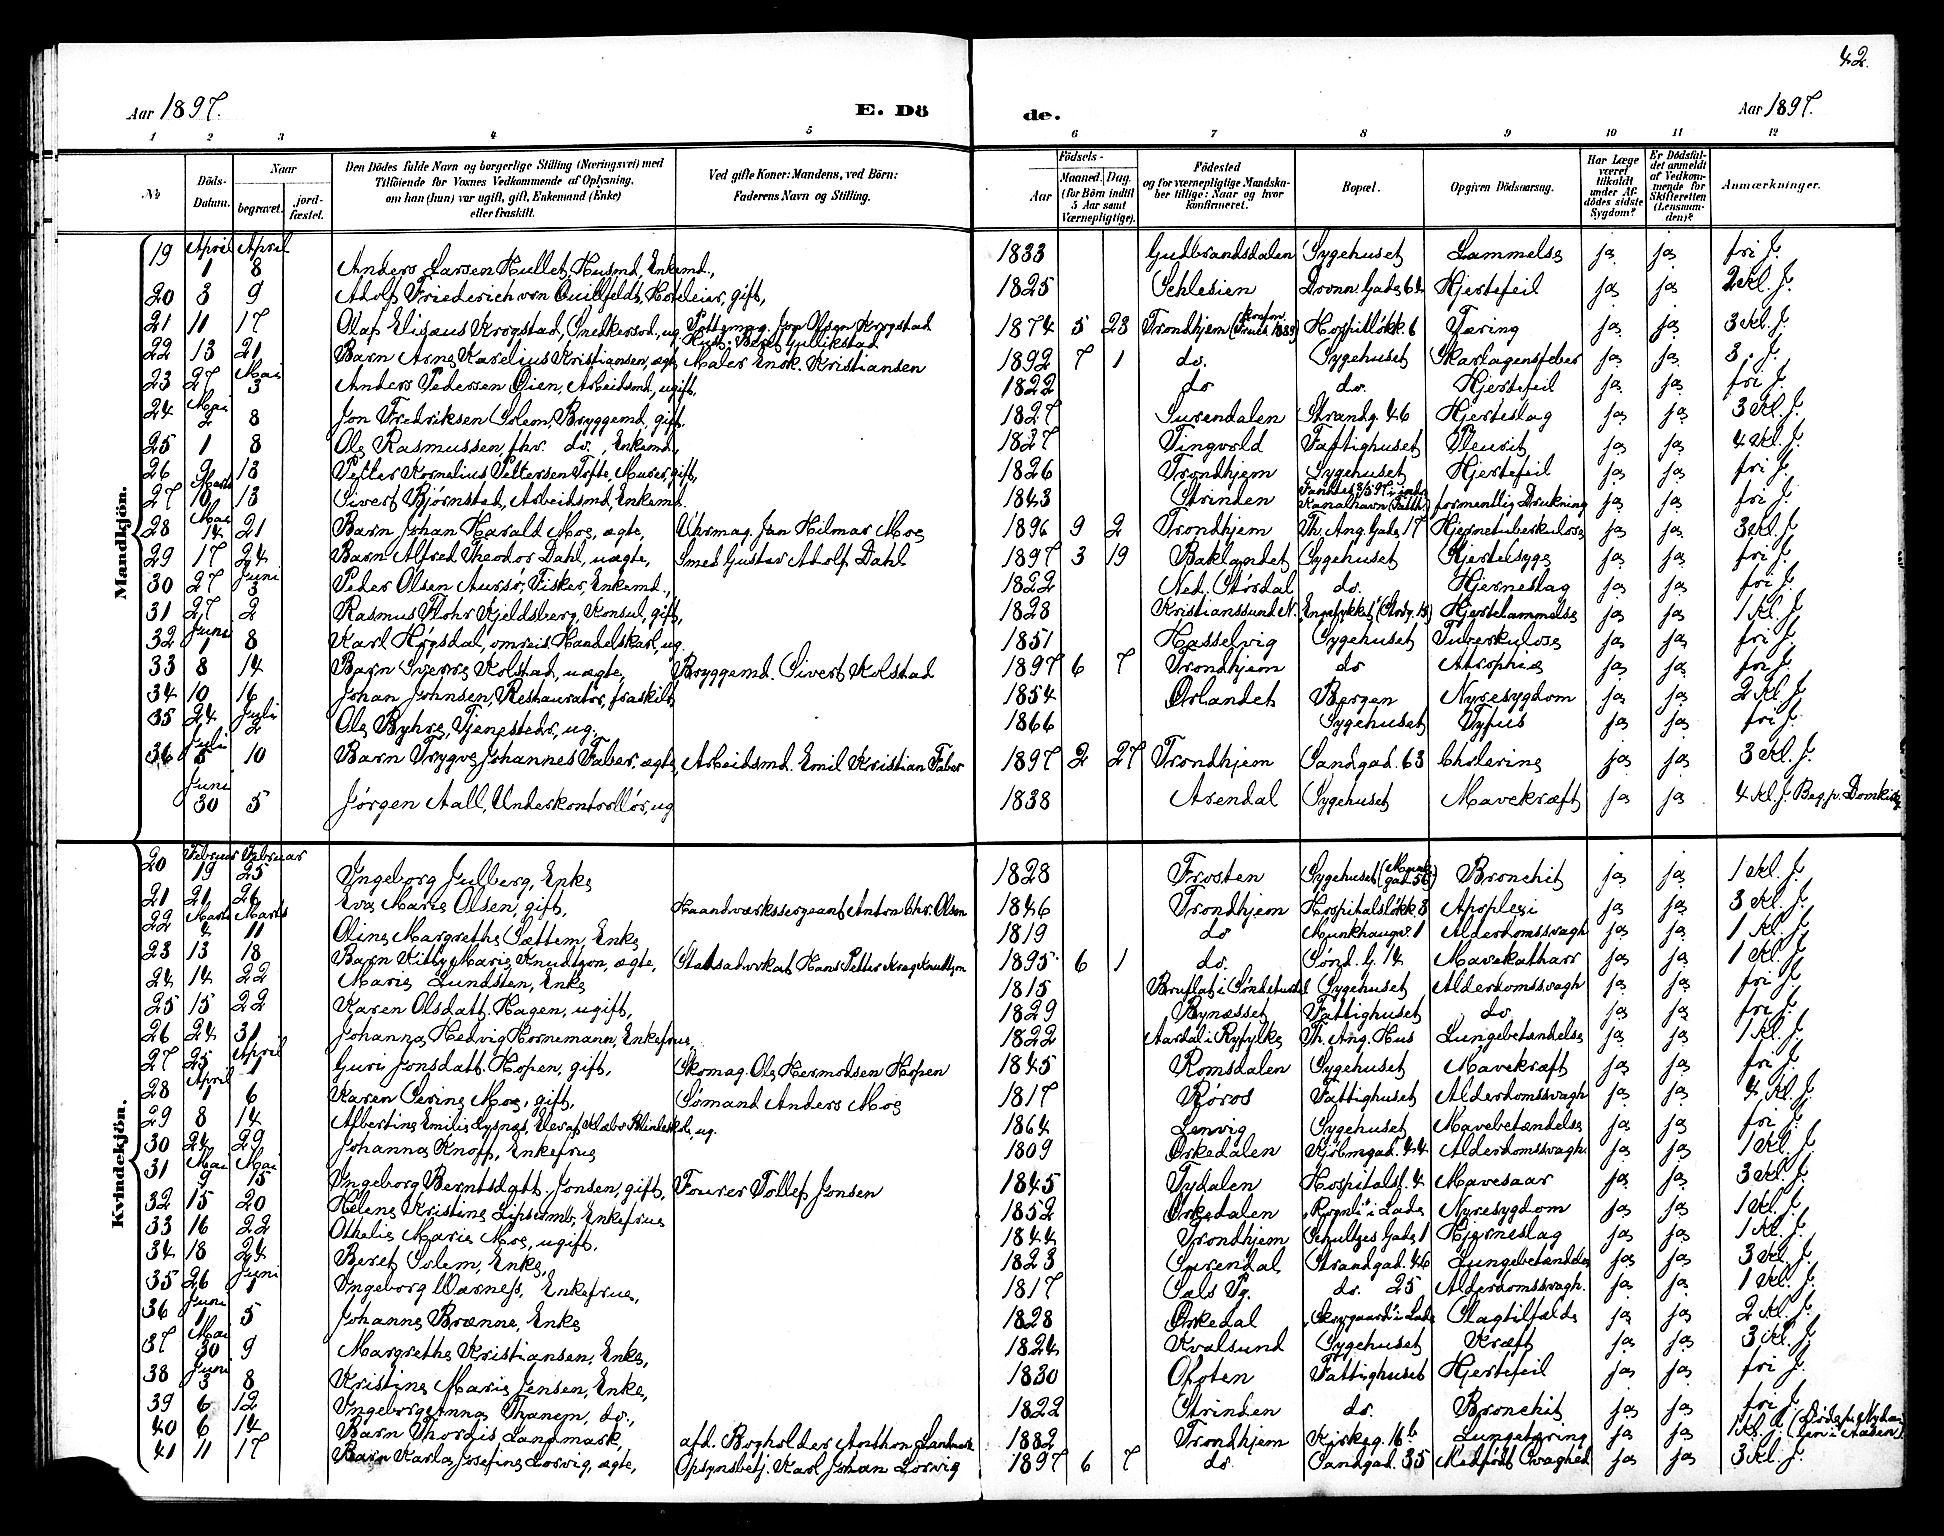 42.
Aar 1897. E. Dö de. Aar 1897.
1 2 3 4 5 6 7 8 9 10 11 12
No. Döds-Datum. Naar begravet. jordfæstet. Den Dödes fulde Navn og borgerlige Stilling (Næringsvei) med Tilföiende for Voxnes Vedkommende af Oplysning, om han (hun) var ugift, gift, Enkemand (Enke) eller fraskilt. Ved gifte Koner: Mandens, ved Börn: Faderens Navn og Stilling. Födsels- Aar Maaned. Dag. (for Börn indtil 5 Aar samt Værnepligtige). Födested og for værnepligtige Mandskaber tillige: Naar og hvor konfirmeret. Bopæl. Opgiven Dödsaarsag. Har Læge været tilkaldt under Afdödes sidste Sygdom? Er Dödsfaldet anmeldt af Vedkommende for Skifteretten (Lensmanden)? Anmærkninger.
Mandkjön.
19 April 1 April 8 Anders Larsen Hullet, Husmd, Enkemd., 1833 Gudbrandsdalen Sygehuset Lammelse ja ja fri J.
20 3 9 Adolf Friederich von Quillfeldt, Hoteleier, gift, 1825 Schlesien Dronn. Gade 64 Hjertefeil ja ja 2 Kl. J.
21 11 17 Olaf Elisæus Krogstad, Snedkersvd, ug. Pottemag. Jon Olsen Krogstad Hust: Beret Gullikstad 1874 5 23 Trondhjem (konfm. 1889) Hospitsløkk. 6 Tæring ja ja 3 Kl. J.
22 13 21 Barn Arne Karelius Kristiansen, ægte Maler Enok Kristiansen 1892 7 1 do. Sygehuset Skarlagensfeber ja ja 3 J.
23 27 Mai 3 Anders Pedersen Øien, Arbeidsmd, ugift, 1822 do do. Hjertefeil ja ja fri J.
24 Mai 2 8 Jon Fredriksen Solem, Bryggemd, gift, 1827 Surendalen Strandg. 46 Hjerteslag ja ja 3 Kl. J.
25 1 8 Ole Rasmussen, fhv. do., Enkemd, 1827 Tingvold Fattighuset Pleurit ja ja 4 Kl. J.
26 9 13 Petter Kornelius Pettersen Tofte, Murer, gift, 1826 Trondhjem Sygehuset Hjertefeil ja ja fri J.
27 Marts 10 13 Sivert Bjørnstad, Arbeidsmd, Enkemd. 1843 Strinden Fundet 8/5 97 i indre Kanalhavn (Fatth.) formentlig Drukning ja ja fri J.
28 Mai 14 21 Barn Johan Harald Moe, ægte, Uhrmag. Jan Hilmar Moe 1896 9 2 Trondhjem Th. Ang. Gade 17 Hjernetuberkulose ja ja 3 Kl. J.
29 17 24 Barn Alfred Theodor Dahl, uægte, Smed Gustav Adolf Dahl 1897 3 19 Baklandet Sygehuset Kjertelsyge ja ja fri J.
30 27 Juni 3 Peder Olsen Aursø, Fisker, Enkemd., 1822 Ned. Stördal do. Hjerneslag ja ja fri J.
31 27 2 Rasmus Flohr Kjeldsberg, Konsul, gift, 1828 Kristianssund N. Hjertelammelse ja ja 1 Kl. J.
32 Juni 1 8 Karl Høgsdal, omreis. Handelskarl, ug. 1851 Hasselvig Sygehuset Tuberkulose ja ja fri J.
33 8 14 Barn Sverre Kolstad, uægte, Bryggemd. Sivert Kolstad 1897 6 7 Trondhjem do Atrophie ja ja fri J.
34 10 16 Johan Johnsen, Restauratør, fraskilt, 1854 Ørlandet Bergen Nyresygdom ja ja 2 Kl. J.
35 24 Juli 2 Ole Byhre, Tjenestedr, ug. 1866 Sygehuset Tyfus ja ja fri J.
36 Juli 5 10 Barn Trygve Johannes Faber, ægte, Arbeidsmd. Emil Kristian Faber 1897 2 27 Trondhjem Sandgad. 63 Cholerine ja ja 3 Kl. J.
Juni 30 5 Jørgen Aall, Underkontrollør, ug 1838 Arendal Sygehuset Mavekræft ja ja 4 Kl. J. Beg. p. Domkirk
Kvindekjön.
20 Februar 19 Februar 25 Ingeborg Julberg, Enke 1828 Frosten Sygehuset (Munkegad. 56) Bronchit ja ja 1 Kl. J.
21 21 26 Eva Marie Olsen, gift, Haandværkssergeant Anton Chr. Olsen 1846 Trondhjem Hospitalsløkk. 3 Apoplexi ja ja 3 Kl. J.
22 Marts 4 Marts 11 Oline Margrethe Sættem, Enke 1819 do Munkhaugv. 1 Alderdomssvagh ja ja 1 Kl. J.
23 13 18 Barn Kitty Marie Knudtzon, ægte, Statsadvokat Hans Petter Krag Knudtzon 1895 6 1 do. Sønd. G. 14 Mavekatharr ja ja 1 Kl. J.
24 14 22 Marie Lundsten, Enke 1815 Bruflat i Søndre Sygehuset Alderdomssvagh ja ja fri J.
25 15 22 Karen Olsdatt. Hagen, ugift, 1829 Bynæsset Fattighuset do ja ja fri J.
26 24 31 Johanna Hedvig Hornemann, Enkefrue, 1822 Aardal i Ryfylke Th. Ang. Hus Lungebetændelse ja ja 1 Kl. J.
27 25 April 1 Guri Jonsdatt. Hopen, gift, Skomag. Ole Hermodsen Hopen 1845 Romsdalen Sygehuset Mavekræft ja ja fri J.
28 April 1 6 Karen Serine Moe, gift, Sømand Anders Moe 1817 Røros Fattighuset Alderdomssvagh ja ja 4 Kl. J.
29 8 14 Albertine Emilie Lysnæs, Elev af Klæbo Blindeskole, ug. 1864 Lenvig Sygehuset Mavebetændelse ja ja fri J.
30 24 29 Johanna Knoff, Enkefrue 1809 Orkedalen Kjøbmgad. 44 Alderdomssvagh. ja ja 1 Kl. J.
31 Mai 9 Mai 15 Ingeborg Berntsdatt. Jonsen, gift, Fourer Tollef Jonsen 1845 Tydalen Hospitalsl. 4 Mavesaar ja ja 3 Kl. J.
32 15 20 Helene Kristine Lipscomb, Enkefrue 1852 Orkedalen "Rognli" i Lade Nyresygdom ja ja 1 Kl. J.
33 16 22 Othelie Marie Moe, ugift, 1844 Trondhjem Schultzes Gade 1 Hjerneslag ja ja 1 Kl. J.
34 18 24 Beret Solem, Enke, 1823 Surendal Strandgad. 46 Lungebetændelse ja ja 3 Kl. J.
35 26 Juni 1 Ingeborg Darness, Enkefrue, 1817 Sals Pg. do. 25 Alderdomssvagh. ja ja 1 Kl. J.
36 Juni 1 5 Johanne Brænne, Enke 1828 Orkedal "Skovgaard" i Lade Slagtilfælde ja ja 2 Kl. J.
37 Mai 30 9 Margrethe Kristiansen, Enke, 1824 Kvalsund Sygehuset Kræft ja ja 3 Kl. J.
38 Juni 3 8 Kristine Marie Jensen, Enke, 1830 Ofoten Fattighuset Hjertefeil ja ja fri J.
39 6 12 Ingeborg Anna Thanem, do., 1822 Strinden do. Bronchit ja ja fri J.
40 6 14 Barn Thordis Landmark, afd. Bogholder Anthon Landmark 1882 Trondhjem Kirkeg. 16 b Lungetæring ja ja 1 Kl. J.
41 11 17 Barn Karla Josefine Lorvig, ægte, Opsynsbetj. Karl Johan Lorvig 1897 6 7 do. Sandgad. 35 Medfødt Svaghed ja ja 3 Kl. J.